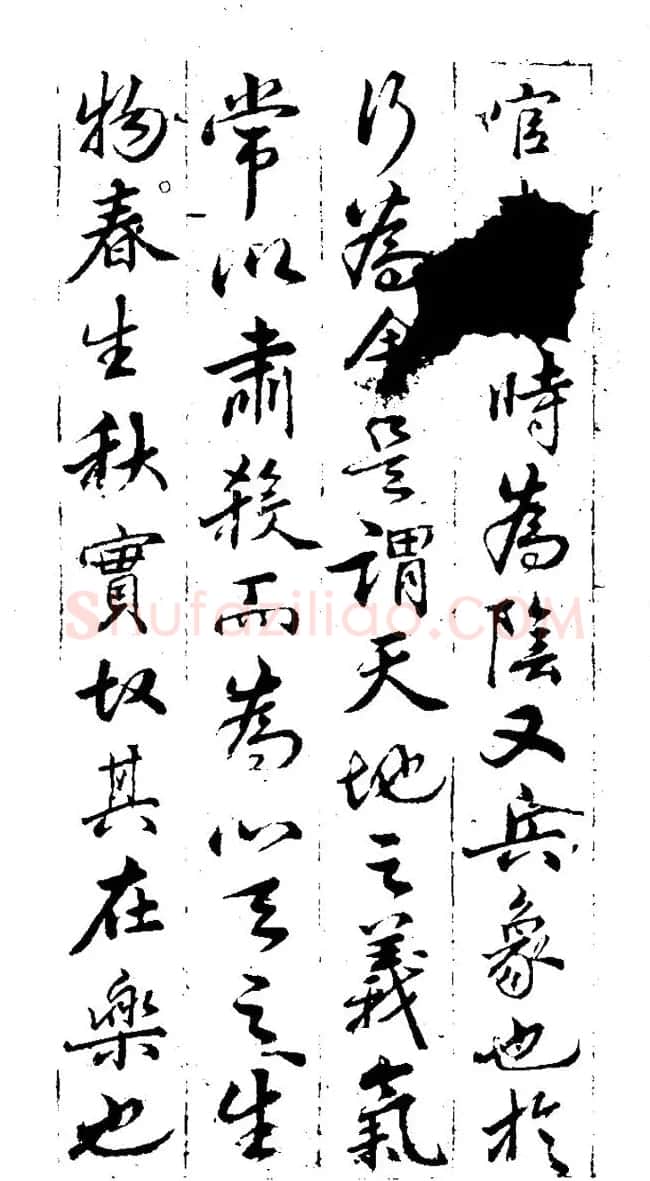 官時為陰又兵象也於
行為金是謂天地之義氣
常以肅殺而為心天之生
物春生秋實故其在樂也
Shufaziliao.COM